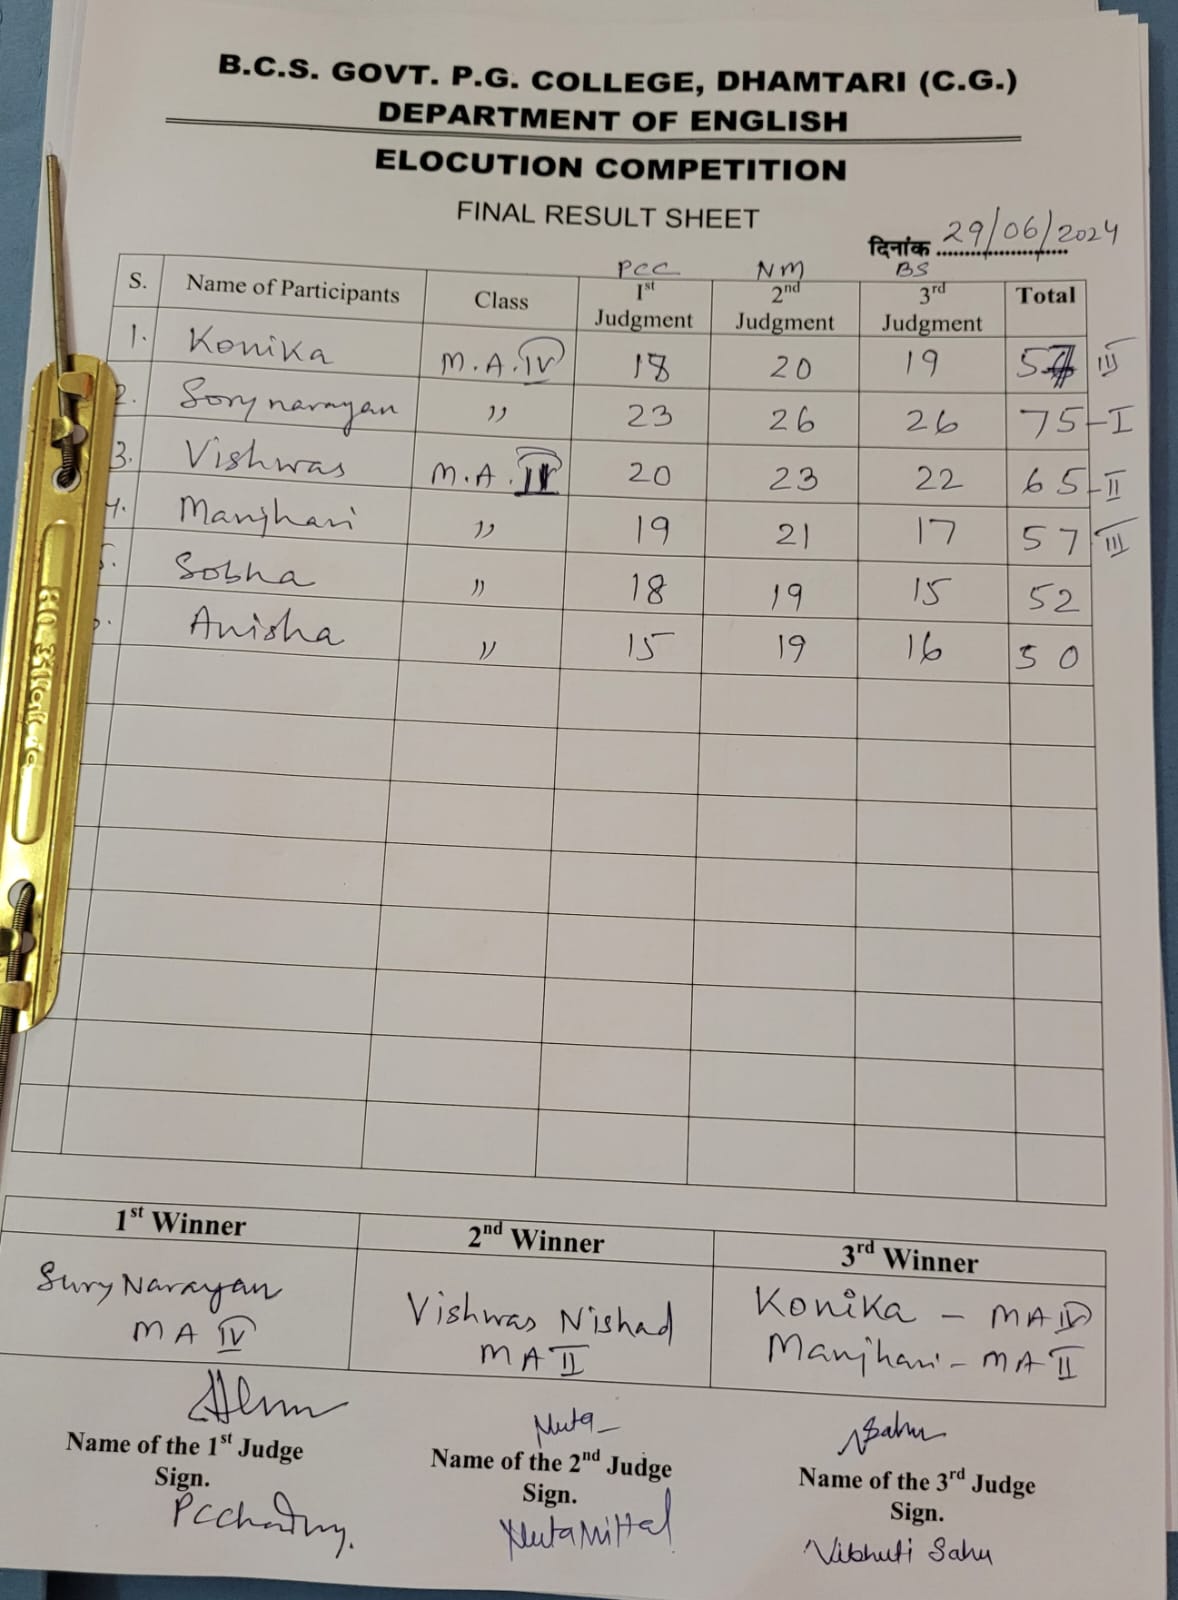 B.C.S. GOVT. P.G. COLLEGE, DHAMTARI (C.G.)
DEPARTMENT OF ENGLISH
ELOCUTION COMPETITION
FINAL RESULT SHEET
दिनांक 29/06/2024
PCC NM BS
S. Name of Participants Class 1st Judgment 2nd Judgment 3rd Judgment Total
1. Konika M.A. IV 18 20 19 57 III
2. Sorynarayan " 23 26 26 75 - I
3. Vishwas M.A. II 20 23 22 65 - II
4. Manjhari " 19 21 17 57 III
5. Sobha " 18 19 15 52
Anisha " 15 19 16 50
1st Winner 2nd Winner 3rd Winner
Sury Narayan Vishwas Nishad Konika - MA IV
MA IV MA II Manjhari - MA II
Nuta Sahu
Name of the 1st Judge Name of the 2nd Judge Name of the 3rd Judge
Sign. Sign. Sign.
Nuta Mittal Vibhuti Sahu